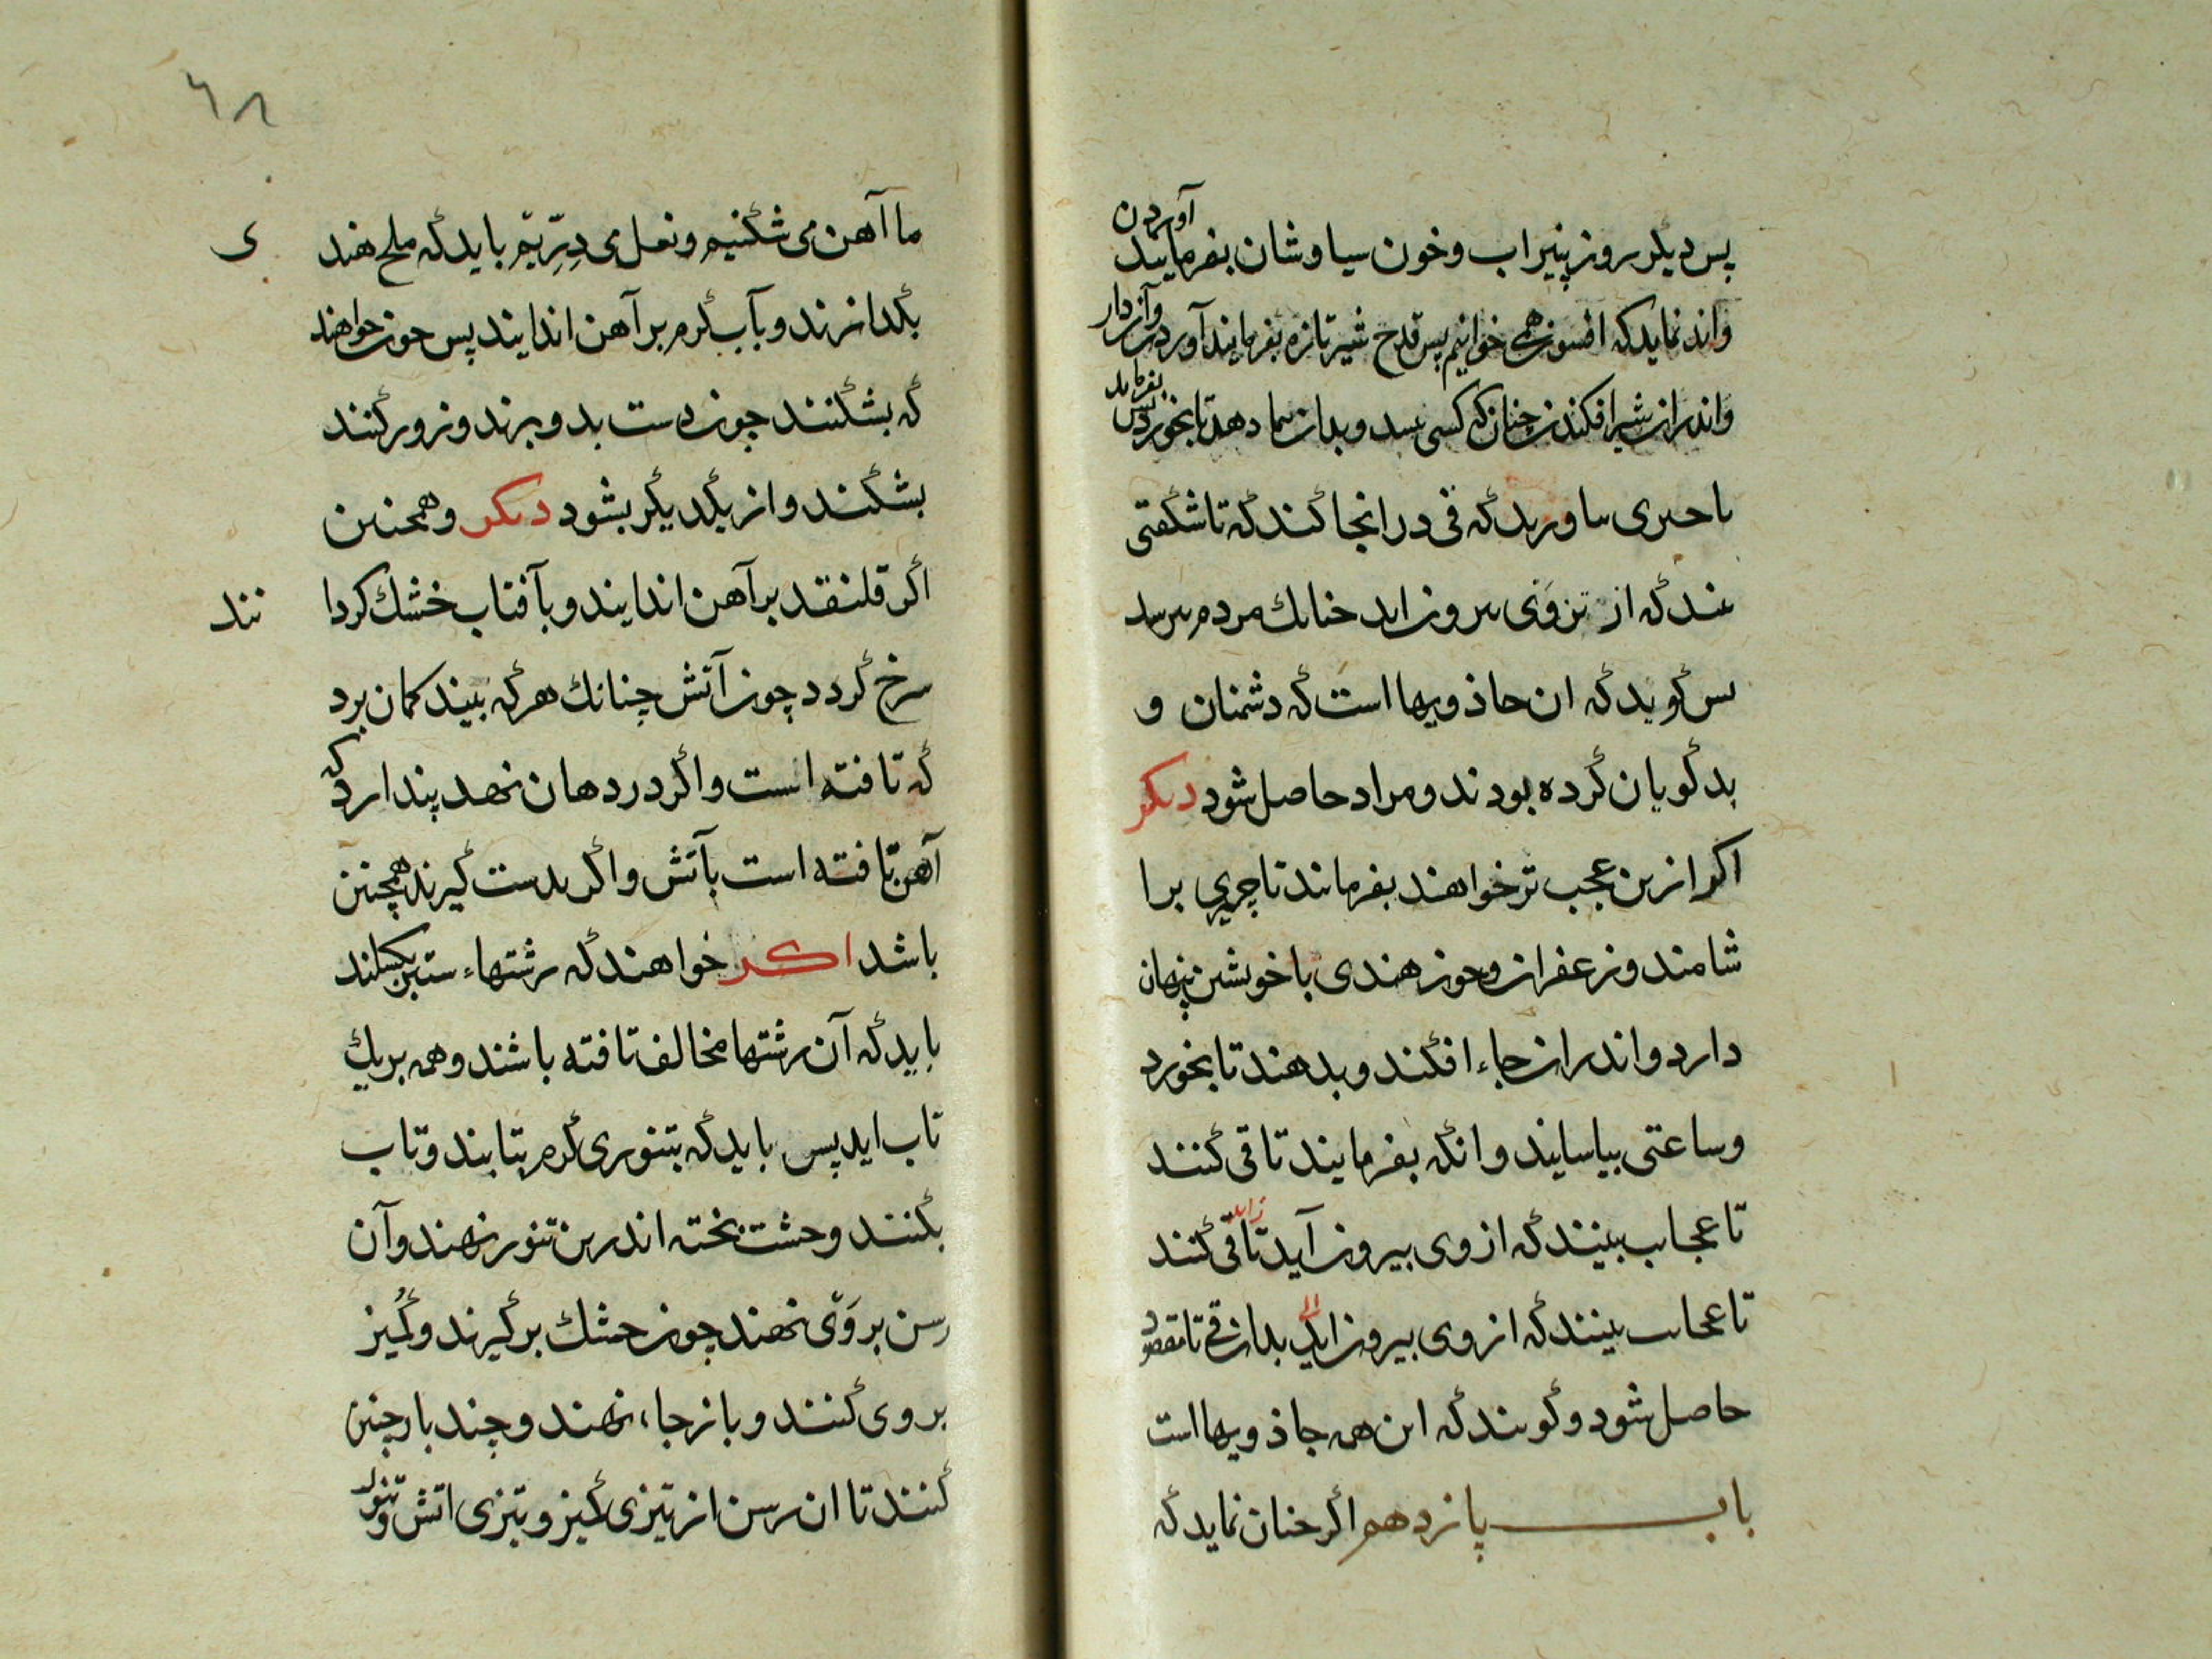 پس دیگر روز پنیراب و خون سیاوشان بفرمایید آوردن
واند نماید که افسون همی خوانیم پس قدح شیر تازه بفرمایند آوردن وآن دار
واندران شیر افکندن چنان که کسی بیند و بدان دهد تا بخورد پس بفرماید
تا حیزی بیاورید که قی در انجا کند که تا شگفتی
بیند که از تن وَی بیرون اید چنانک مردم بترسد
پس گوید که این جاذویها است که دشمنان و
بدگویان کرده بودند و مراد حاصل شود دیگر
اگر ازین عجب تر خواهند بفرمایند تا چیزی برا
شامند و زعفران و جوز هندی با خویشتن پنهان
دارد و اندران جاء افکند و بدهند تا بخورد
و ساعتی بیاسایند و انگه بفرمایند تا قی کنند
تا عجایب بینند که از وی بیرون آید تا قی کنند
زاید
تا عجایب بینند که از وی بیرون اید بدان قی تا مقصود
الی
حاصل شود و گویند که این همه جاذویها است
باب پانزدهم اگر چنان نماید که
۶۸
ما آهن می شکنیم و نعل می دِرِّیم باید که ملح هند
ی
بگدازند و بآب گرم بر آهن اندایند پس چون خواهند
که بشکنند چون دست بدو برند و زور کنند
بشکند و از یکدیگر بشود دیگر و همچنین
اگر قلنقد بر آهن اندایند و بآفتاب خشک کردا
نند
سرخ گردد چون آتش چنانک هرکه بیند کمان برد
که تافته است و اگر در دهان نهد پندارد که
آهن تافته است بآتش و اگر بدست گیرند همچنین
باشد اگر خواهند که رشتهاء ستبر بگسلند
باید که آن رشتها مخالف تافته باشند و همه بریک
تاب اید پس باید که بتنوری گرم بتابند و تاب
بکنند و خشت پخته اندرین تنور نهند و آن
رسن بر وَی نهند چون خشک برگیرند و کُمیز
بر وی کنند و باز جاء نهند و چند بار چنین
کنند تا ان رسن از تیزی کمیز و تیزی اتش و تنور